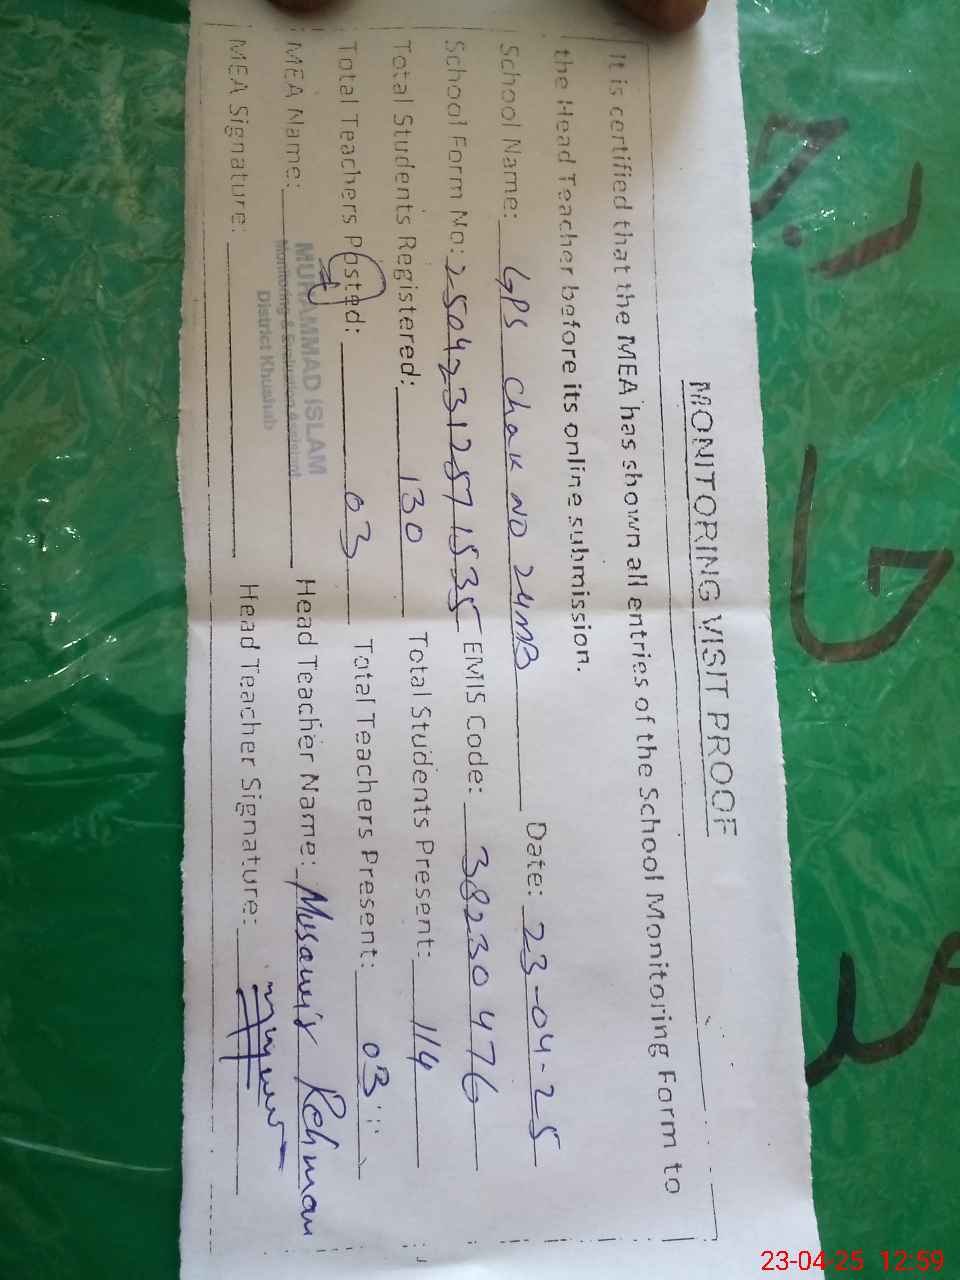 MONITORING VISIT PROOF
It is certified that the MEA has shown all entries of the School Monitoring Form to
the Head Teacher before its online submission.
School Name: GPS Chak NO 24MB Date: 23-04-25
School Form No: 25042312571535 EMIS Code: 38230476
Total Students Registered: 130 Total Students Present: 114
Total Teachers Posted: 03 Total Teachers Present: 03
MEA Name: Head Teacher Name: Musawir Rehman
MUHAMMAD ISLAM
Monitoring & Evaluation Assistant
District Khushab
MEA Signature: Head Teacher Signature:
23-04-25 12:59